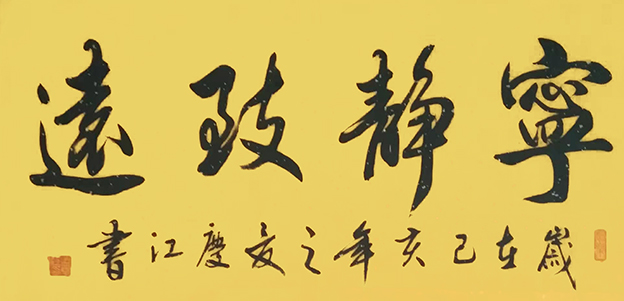 寧静致遠
歲在己亥年之夏慶江書